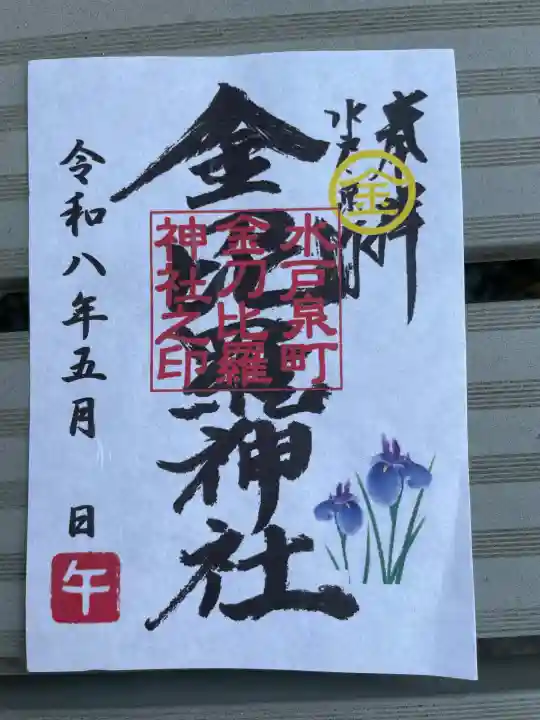 奉拝
水戸泉町
金
金刀比羅神社
水戸泉町
金刀比羅
神社之印
令和八年五月 日
午